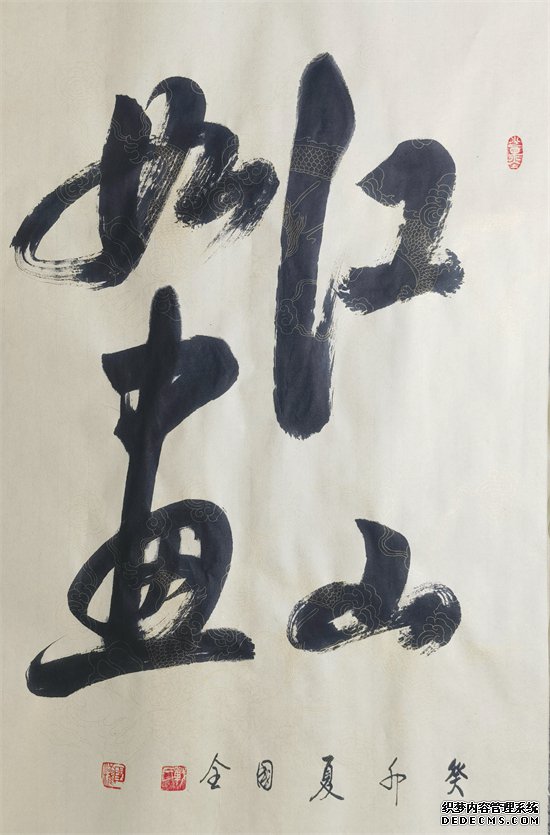 江山
如画
癸卯夏国全
织梦内容管理系统
DEDECMS.COM